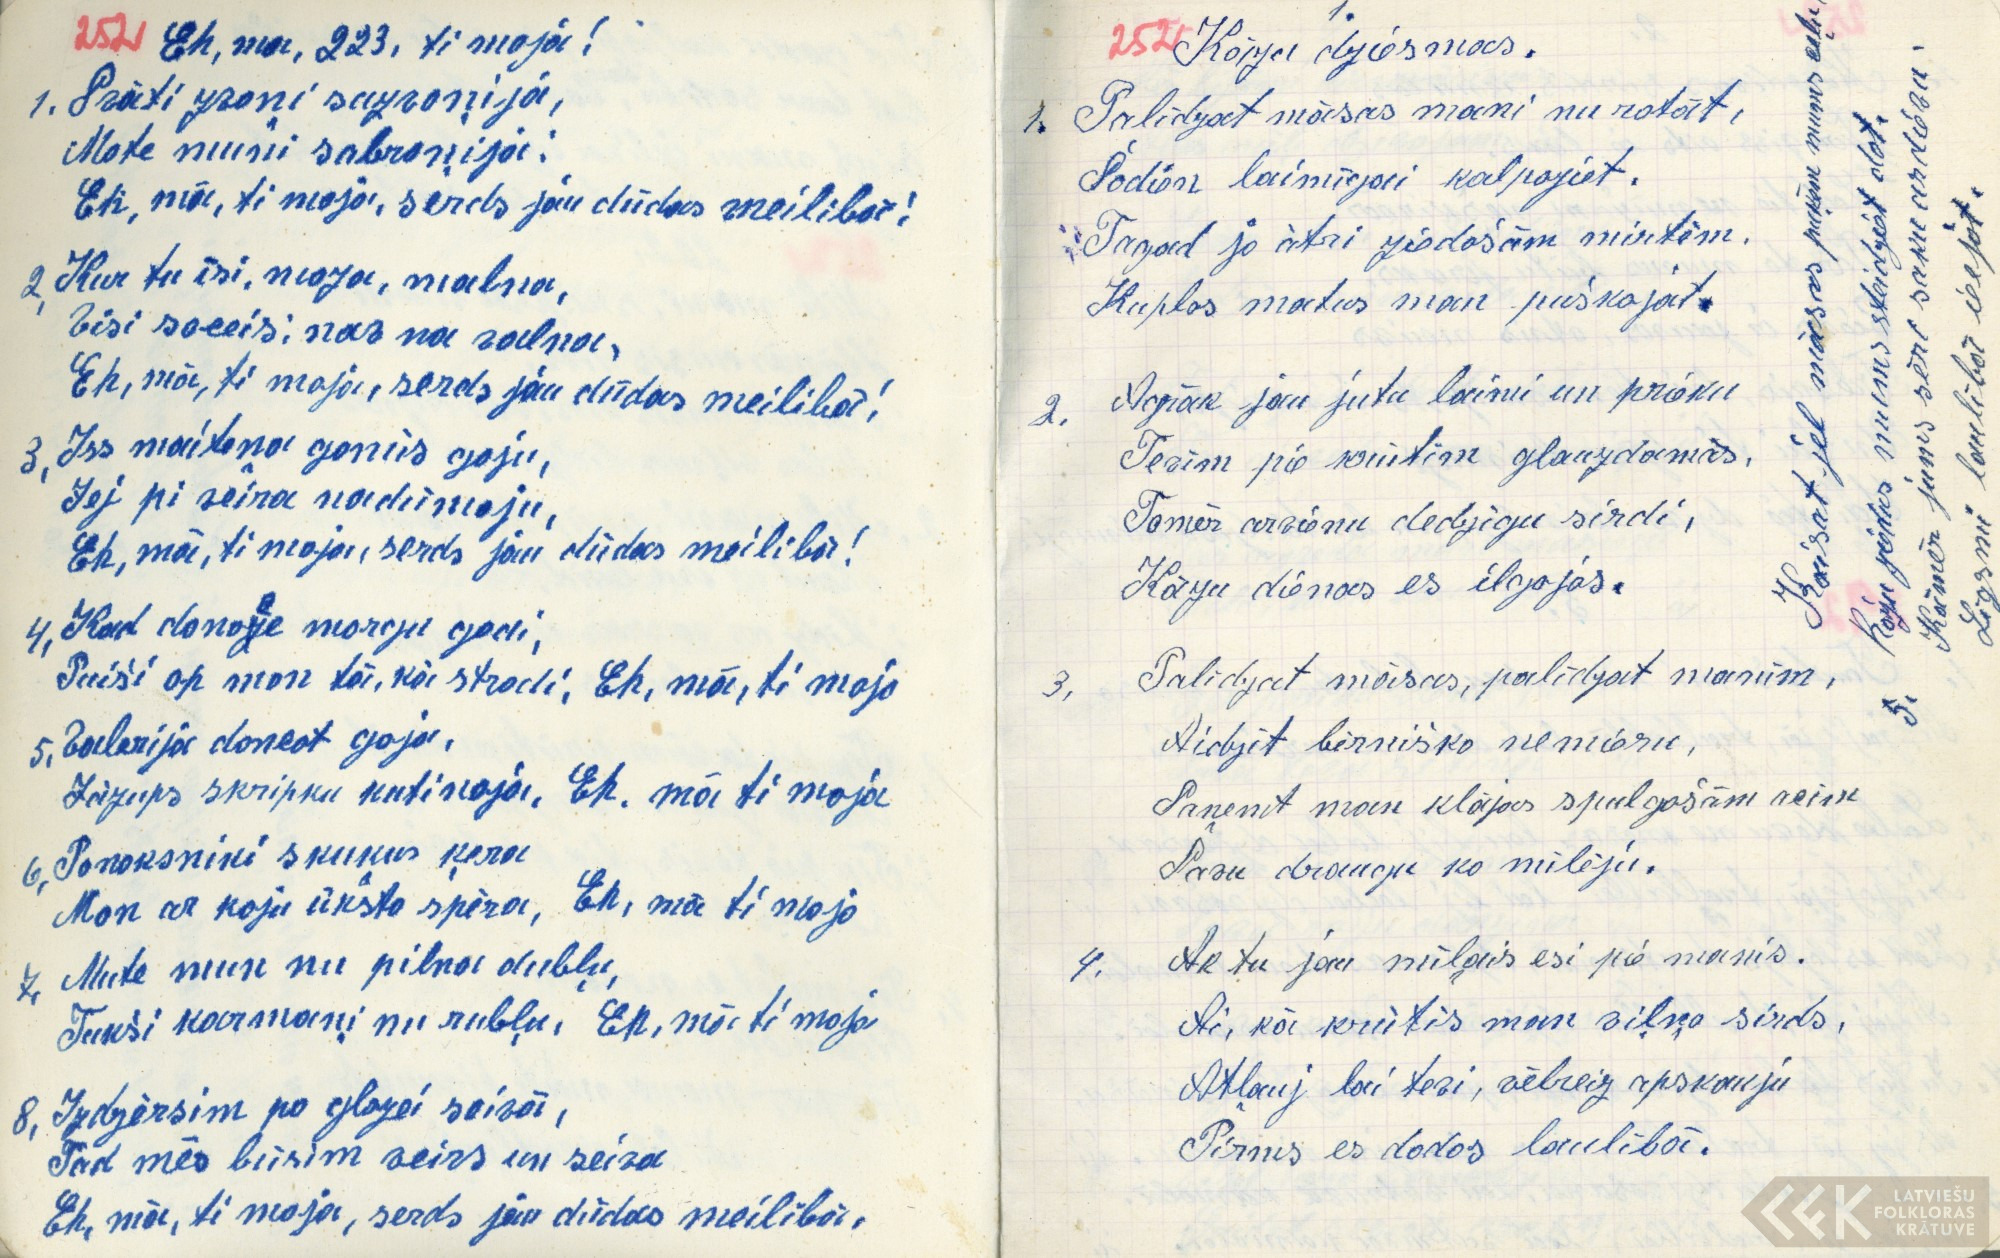 252 Eh, ma, 223, ti mojá!
1. Präti zvoni sazvoņijá,
Mote muni sabroņijá.
Eh, mā, ti mojá, serds jau dūdas meilibā!
2, Kur tu īsi, moza, malna,
Visi soceis: nav na valna,
Eh, mā, ti moja, serds jau dūdas meilibā!
3, Iss maitena gonūs goju,
Jej pi veira nadūmoju,
Eh, mā, ti moja, serds jau dūdas meilibā!
4, Kad donoče morgu godi,
Puiši ap mon tā, kā strodi, Eh, mā, ti mojo
5, Valerija doncot goja,
Jāzups skripku kutinoja, Eh. mā ti moja
6, Ponaksniki skukus ķera
Mon ar koju ūkšto spēra, Eh, mā ti mojo
7, Mute mun nu pilna dubļu,
Tukši karmaņi nu rubļu, Eh, mā ti moja
8, Izdzērsim po glozei seivā,
Tad mēs būsim veirs un seiva
Eh, mā, ti moja, serds jau dūdas meilibā.
1.
252 Kāzu dziesmas.
1. Palidzat māsas mani nu rotāt,
Šodien laimīgai kalpojiet.
Tagad jo ātri ziedošām mirtēm,
Kuplos matus man puškojat.
2. Agrāk jau jutu laimi un prieku
Tevim pie krūtīm glauzdamās,
Tomēr arvienu dedzīgu sirdi,
Kāzu dienas es ilgojos.
3, Palidzat māsas, palidzat manim,
Aidzīt bērnišķo nemieru,
Paņemt man klājas spulgošām acim
Pašu draugu ko mīlēju.
4. Ak tu jau mīļais esi pie manis.
Ai, kā krūtīs man viļņo sirds,
Atļauj lai tevi, vēlreiz apskauju
Pirms es dodos laulībā.
5. Kaisat jel māsas puķēm mums ceļu,
Kāzu rindas mums staidzot dot.
Kāmēr jums sēri saku ardievu.
Līgsmi laulībā ieejot.
LATVIEŠU
FOLKLORAS
KRĀTUVE